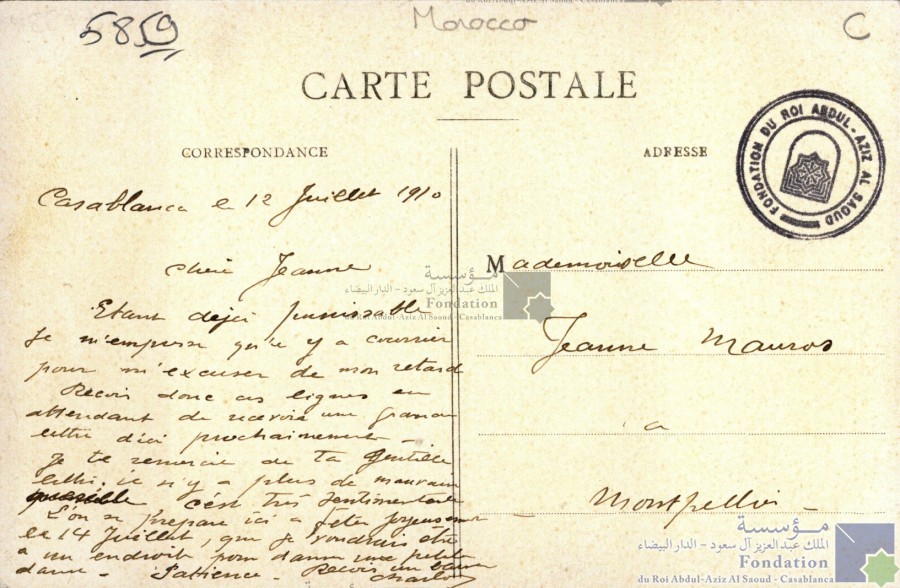 5859
Morocco
C
CARTE POSTALE
CORRESPONDANCE
ADRESSE
FONDATION DU ROI ABDUL-AZIZ AL SAOUD
Casablanca le 12 Juillet 1910
Cheré Jeanne
Etant déjà punissable
Je m'empresse qu'il y a courrier
pour m'excuser de mon retard
Recois donc ces lignes en
attendant de recevoir une grande
lettre d'ici prochainement -
Je te remercie de ta gentille
lettre, je n'y a plus de mauvais
c'est très sentimentale
L'on se prepare ici a feter joyeusement
le 14 Juillet, que je voudrais être
a un endroit pour danse une petite
danse - Patience - Recois un
Charles
Mademoiselle
Jeanne Mauros
a
Montpellier -
مؤسسة
الملك عبد العزيز آل سعود - الدار البيضاء
Fondation
du Roi Abdul-Aziz Al Saoud - Casablanca
مؤسسة
الملك عبد العزيز آل سعود - الدار البيضاء
Fondation
du Roi Abdul-Aziz Al Saoud - Casablanca